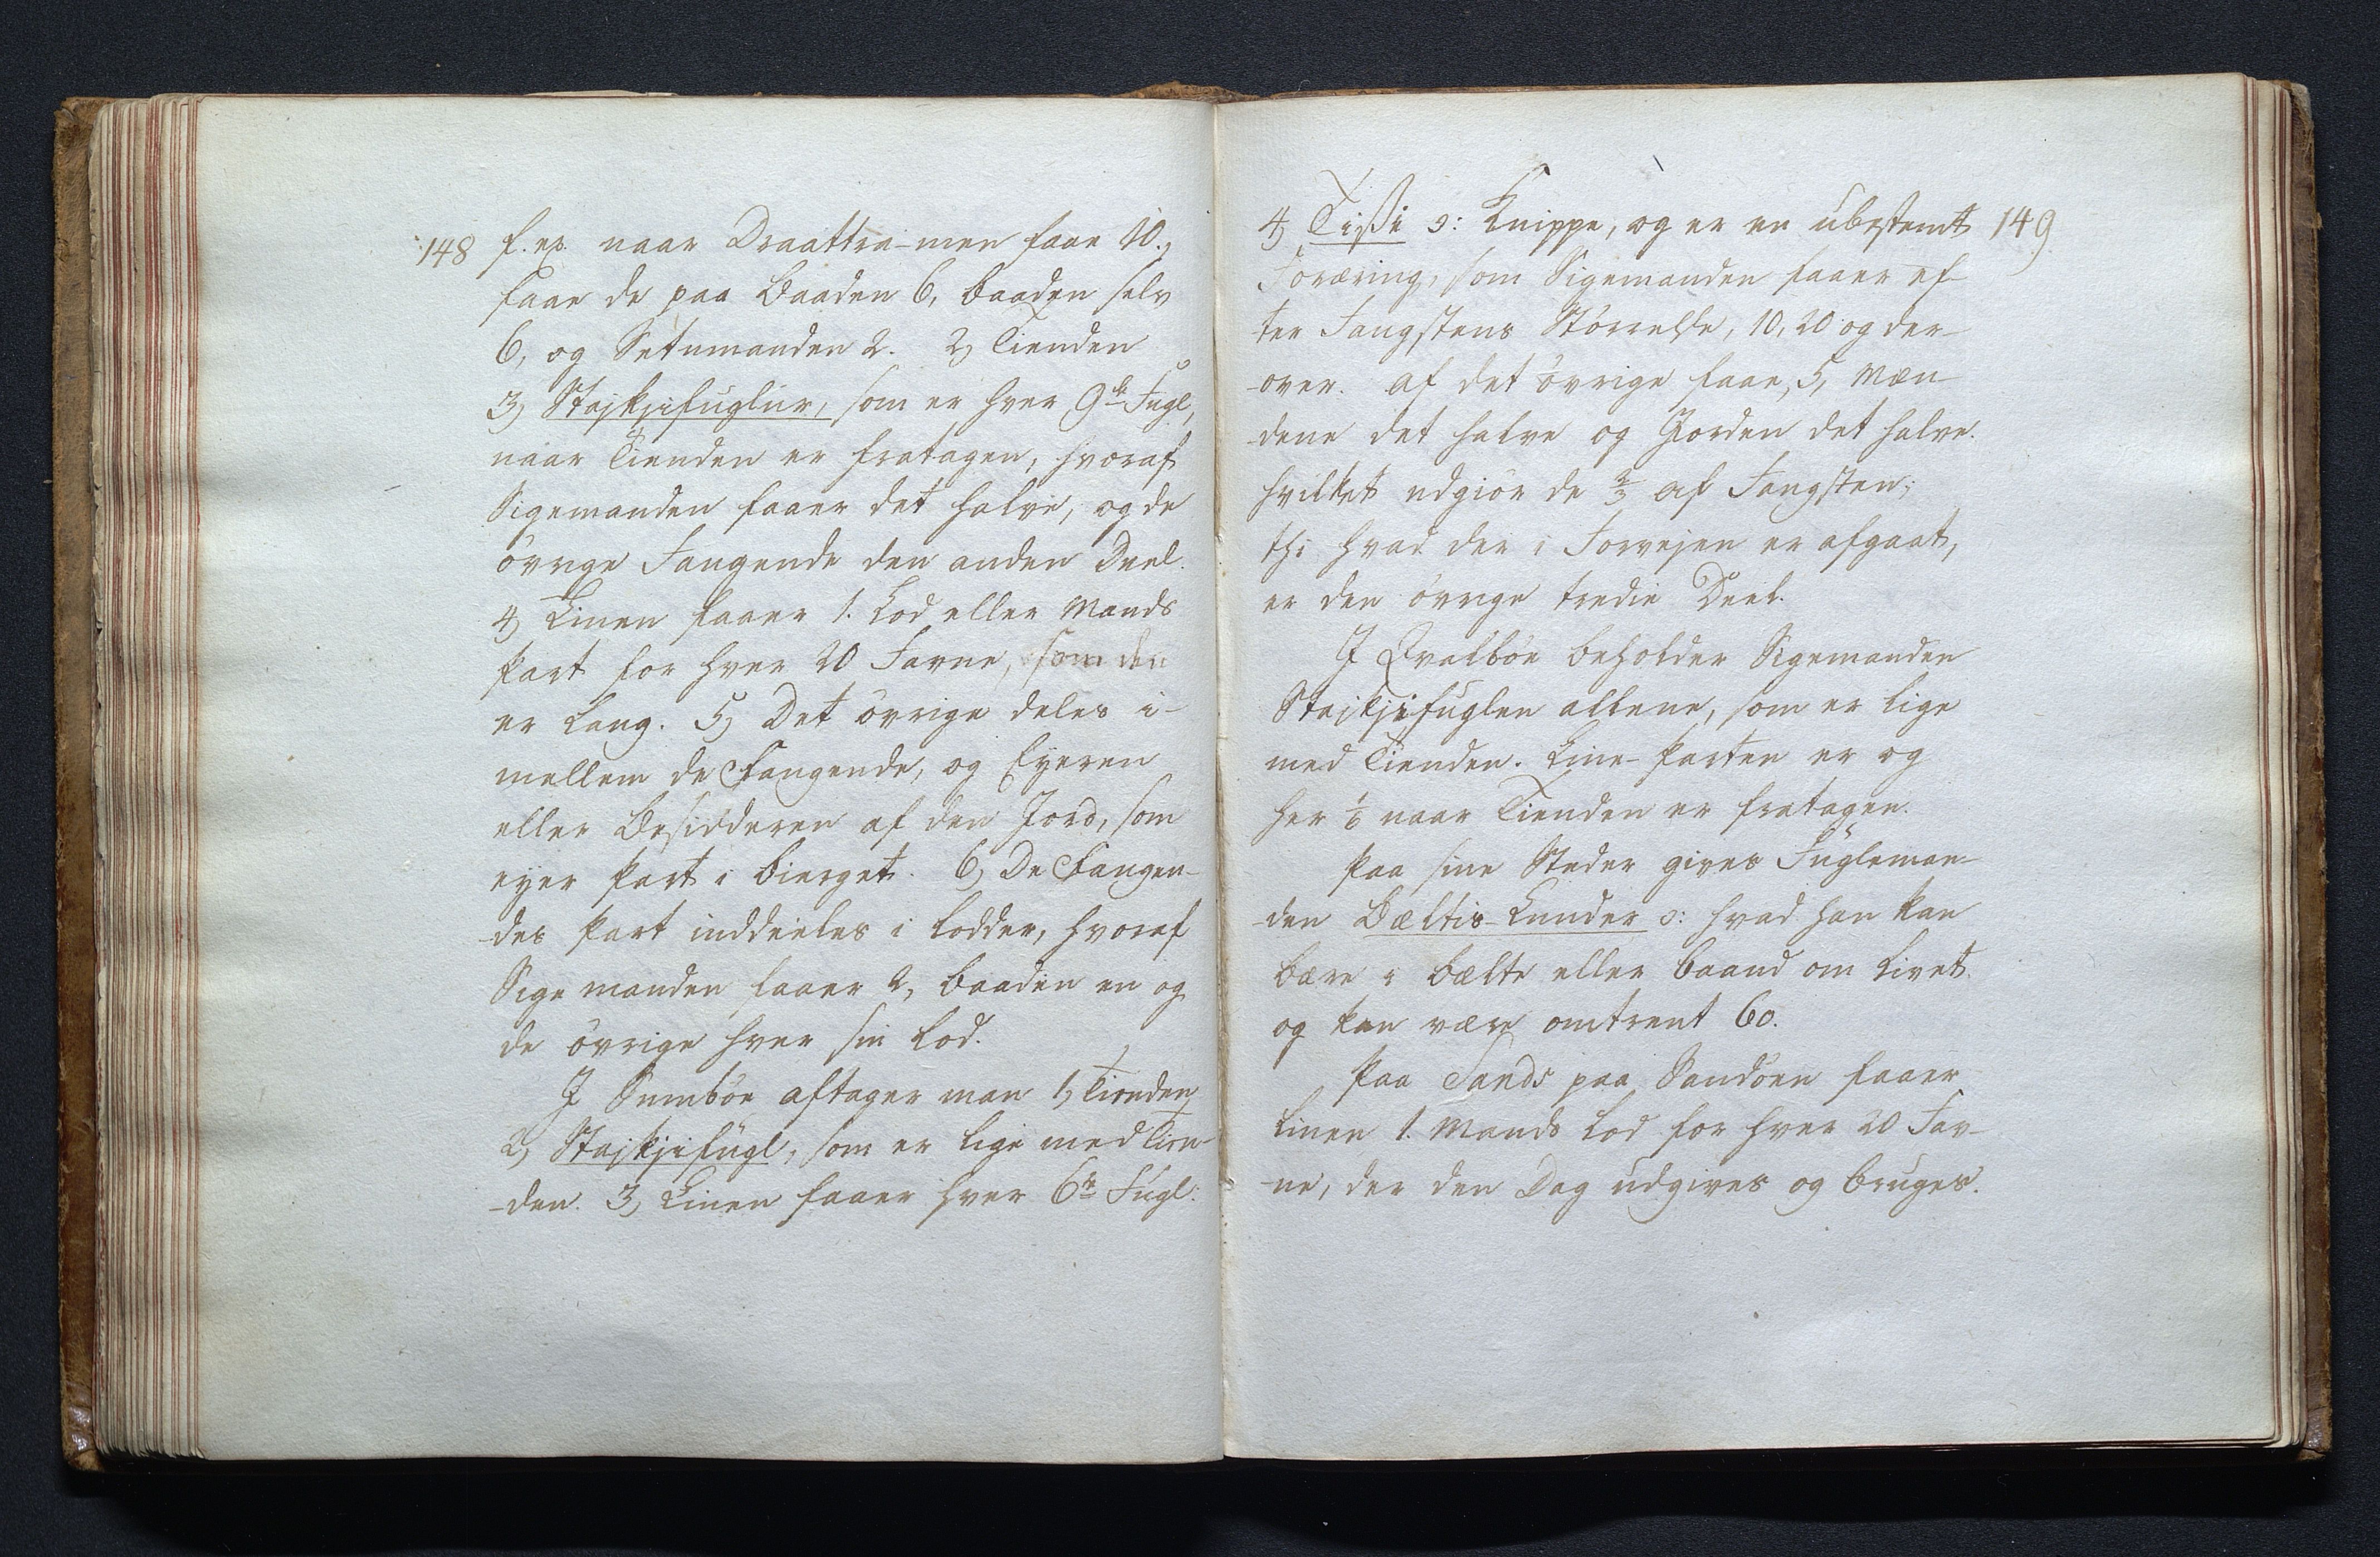 148
f. ex. naar Draattra-men faae 10.,
faae de paa Baaden 6, baaden selv
6, og Setumanden 2. 2) Tienden
3) Stajkjifuglur, som er hver 9de Fugl,
naar Tienden er fratagen, hvoraf
Sigemanden faaer det halve, og de
övrige Fangende den anden Deel.
4) Linen faaer 1. Lod eller Mands
Part for hver 20 Favne, som den
er Lang. 5) Det övrige deles i-
mellem de Fangende, og Eyeren
eller Besidderen af den Jord, som
eyer Part i bierget. 6) De Fangen-
des Part inddeeles i Lodder, hvoraf
Sigemanden faaer 2, baaden en og
de övrige hver sin Lod.
I Sumböe aftager man 1) Tienden
2) Stajkjifugl, som er lige med Tien-
den. 3) Linen faaer hver 6te Fugl.
149
4) Tissi ɔ: Knippe, og er en ubestemt
Foræring, som Sigemanden faaer ef-
ter Fangstens Störrelse, 10, 20 og der-
over. Af det övrige faae, 5, Mæn-
dene det halve og Jorden det halve.
hvilket udgiör de 2/3 af Fangsten;
thi hvad der i Forvejen er afgaat,
er den övrige tredie Deel.
I Qvalböe beholder Sigemanden
Stajkjifuglen allene, som er lige
med Tienden. Line-Parten er og
her 1/6 naar Tienden er fratagen.
Paa sine Steder gives Fugleman-
den Bæltis-Lunder ɔ: hvad han kan
bære i bælte eller baand om Livet.
og kan være omtrent 60.
Paa Sands paa Sandöen faaer
Linen 1. Mands Lod for hver 20 Fav-
ne, der den Dag udgives og bruges.